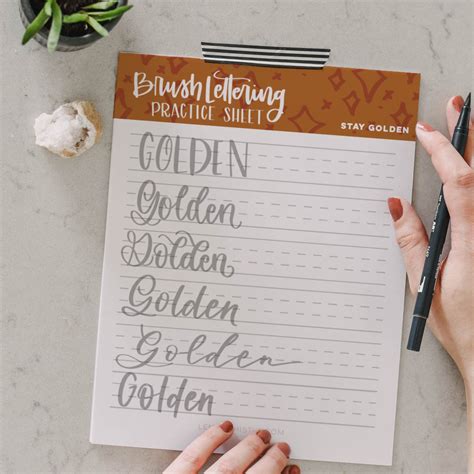 Brush Lettering
PRACTICE SHEET
STAY GOLDEN
GOLDEN
Golden
Golden
Golden
Golden
Golden